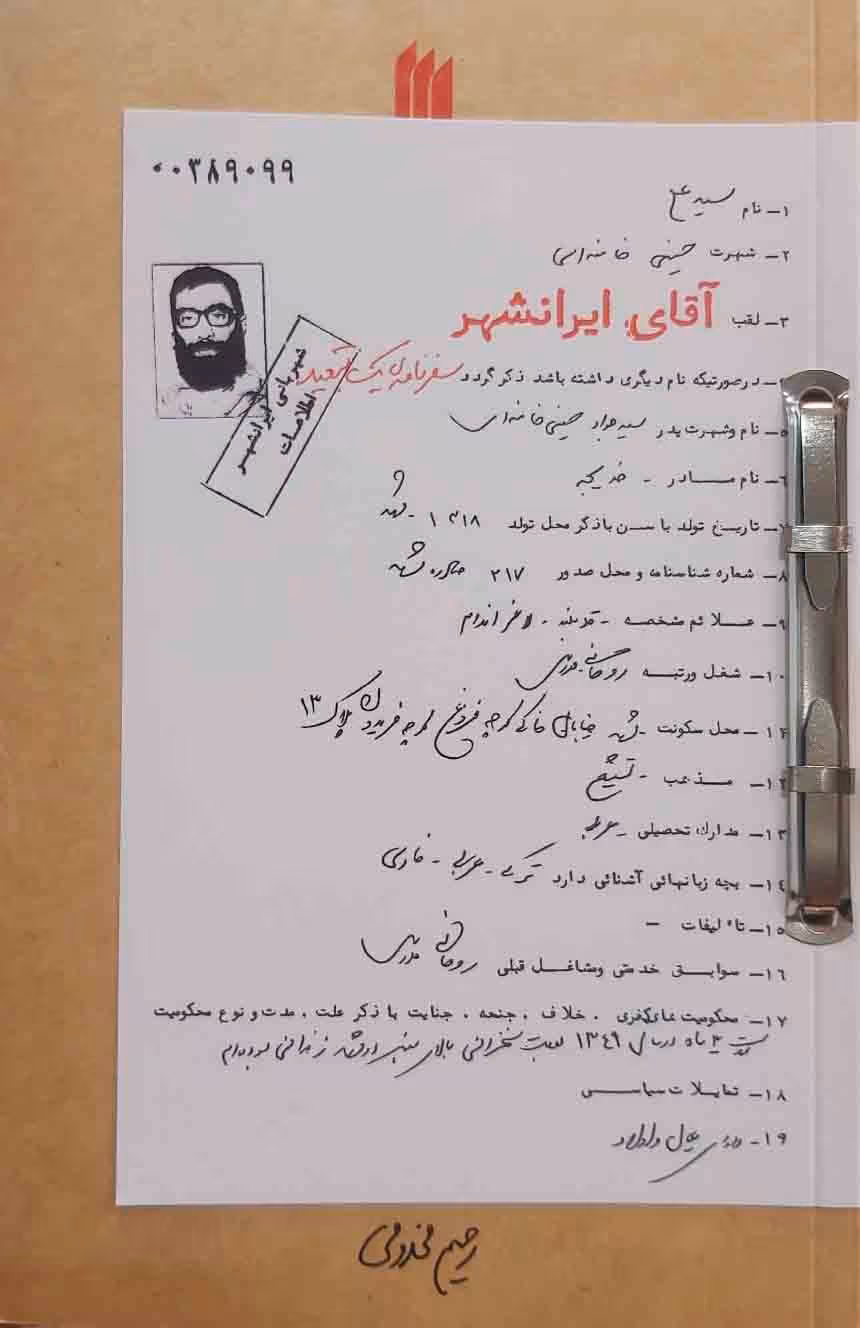 ۰۰۳۸۹۰۹۹
۱- نام سید علی
۲- شهرت حسینی خامنه‌ای
۳- لقب آقای ایرانشهر
در صورتیکه نام دیگری داشته باشد ذکر گردد سفرنامه‌ی یک تبعید
شهربانی ایرانشهر
اطلاعات
۵- نام و شهرت پدر سید جواد حسینی خامنه‌ای
۶- نام مادر - خدیجه
۷- تاریخ تولد یا سن با ذکر محل تولد ۱۳۱۸ - مشهد
۸- شماره شناسنامه و محل صدور ۲۱۷ صادره مشهد
۹- علائم مشخصه - قد بلند - لاغر اندام
۱۰- شغل و رتبه روحانی
محل سکونت - مشهد خیابان خاکی کوچه فروغ کوچه فریدون پلاک ۱۳
۱۲- مذهب - تشیع
۱۳- مدارک تحصیلی -
۱۴- بچه زبانهائی آشنائی دارد ترکی - عربی - فارسی
۱۵- تاءلیفات -
۱۶- سوابق خدمتی و مشاغل قبلی روحانی
۱۷- محکومیت های کیفری ، خلاف ، جنحه ، جنایت با ذکر علت ، مدت و نوع محکومیت
ماه در سال ۱۳۴۹ سخنرانی بالای منبر در مشهد زندانی بوده‌ام
۱۸- تمایلات سیاسی
۱۹-
رحیم مخدومی